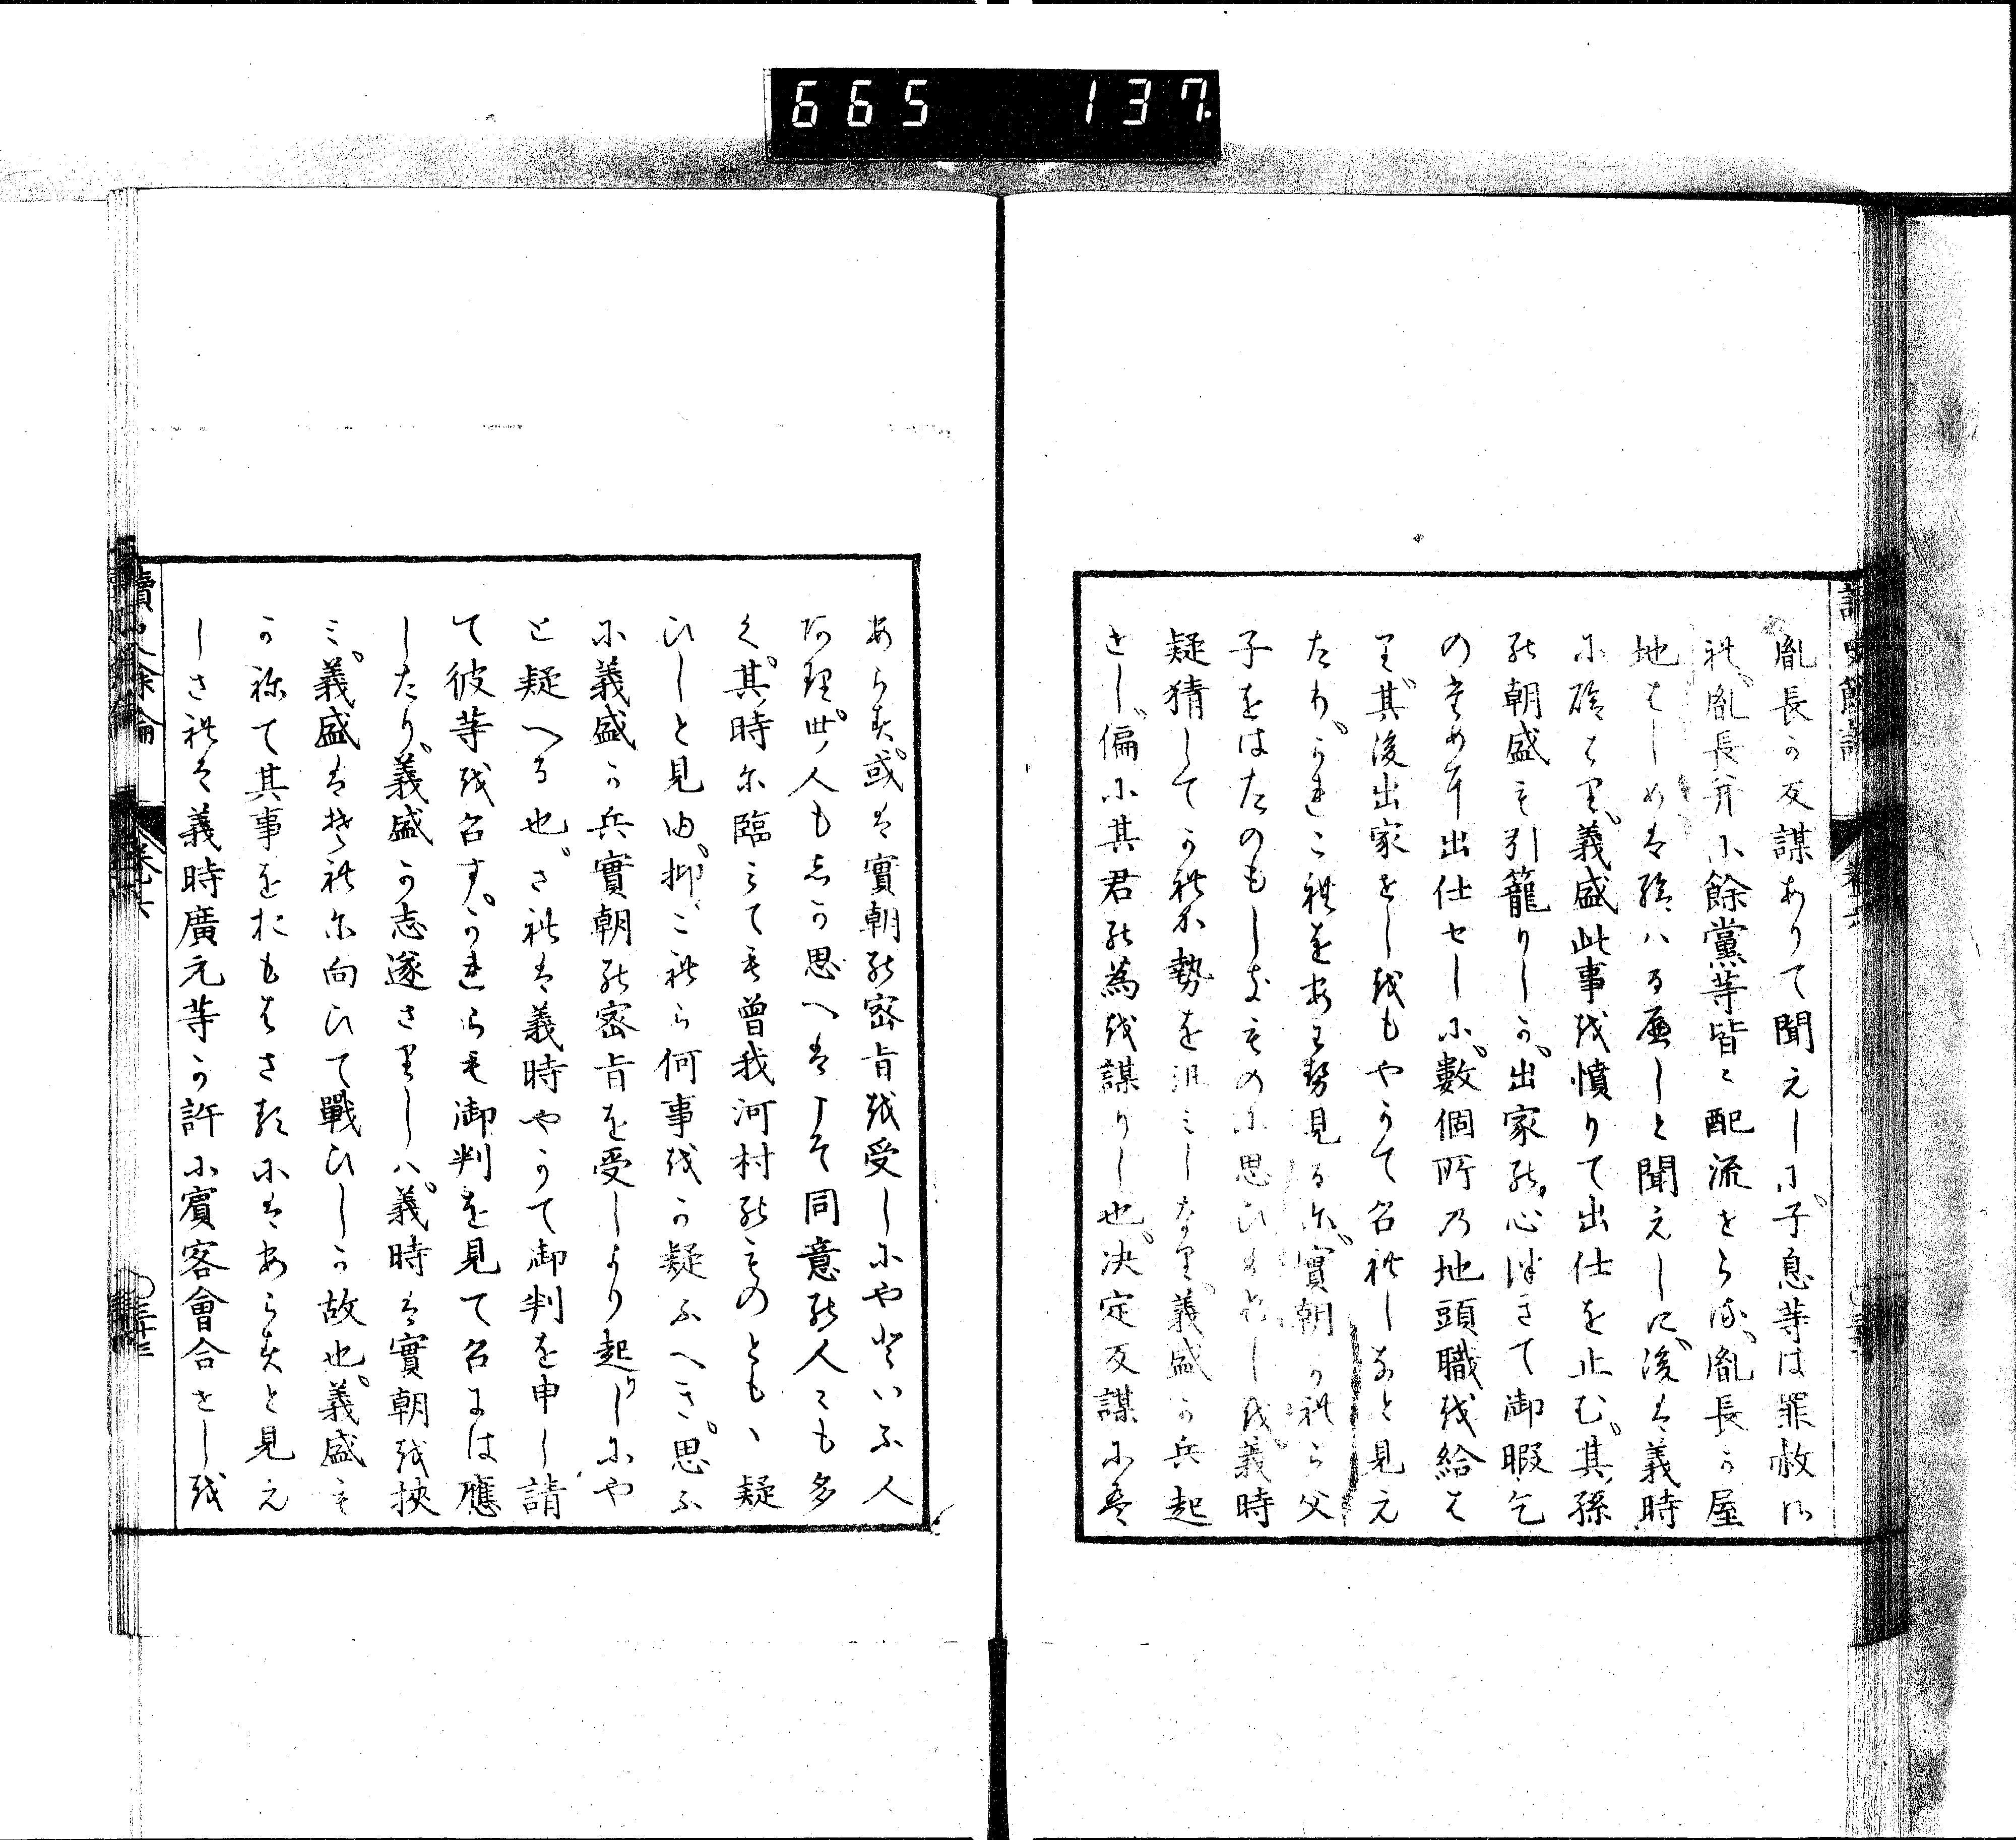 665 137
胤長か反謀ありて聞えしに子息等は罪赦さ
れ胤長并に餘黨等皆〻配流せらる胤長か屋
地はしめは給はる旨しと聞えしに後は義時
に給はり義盛此事を憤りて出仕を止む其孫
の朝盛も引籠りしか出家の心付きて御暇乞
のために出仕せしに數個所の地頭職を給は
り其後出家せしをもやかて召れしなと見え
たりかれこれをあはせ見るに實朝かれら父
子をはたのもしきものに思ひ給ひしを義時
疑猜してかれか勢を沮みしなり義盛か兵起
せし偏に其君の為を謀りし也决定反謀には
あらす或は實朝の密旨を受しにやといふ人
あり世の人もしか思へはこそ同意の人〻も多
く其時に臨みても曾我河村のものともゝ疑
ひしと見ゆ抑これら何事をか疑ふへき思ふ
に義盛か兵實朝の密旨を受しより起りしにや
と疑へる也されは義時やかて御判を申し請
て彼等を召すかれらも御判を見て召には應
したり義盛か志遂さりしハ義時は實朝を挾
み義盛はそれに向ひて戰ひしか故也義盛も
かねて其事をおもはさるにはあらすと見え
しされは義時廣元等か許に賓客會合せしを
讀史餘論 卷六